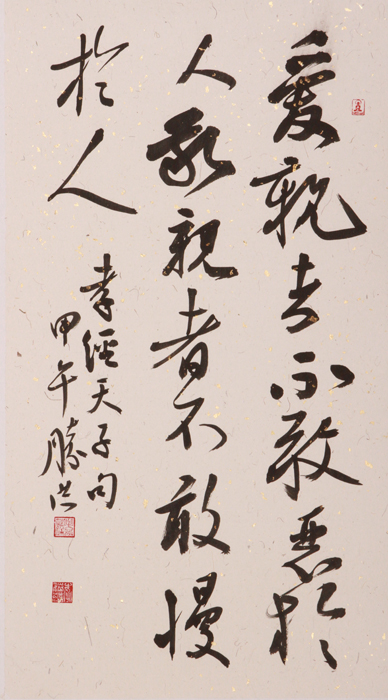 愛親者不敢惡於
人敬親者不敢慢
於人
孝經天子句
甲午勝洪